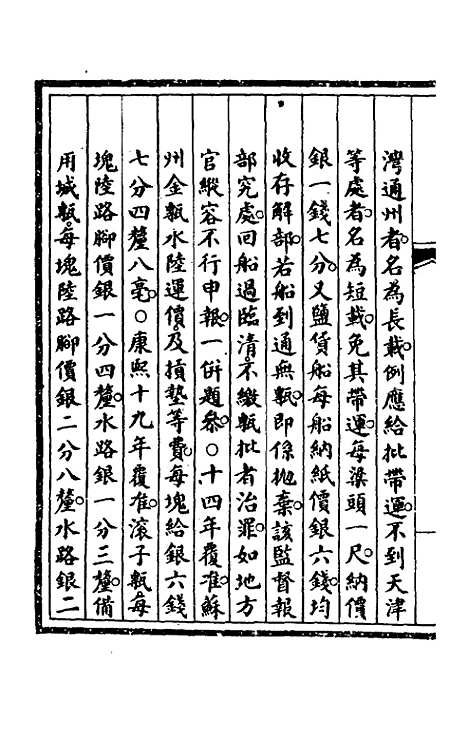 灣通州者。名為長載。例應給批帶運。不到天津
等處者。名為短載。免其帶運。每梁頭一尺。納價
銀一錢七分。又鹽貨船每船納紙價銀六錢。均
收存解部。若船到通無甎。即係拋棄。該監督報
部究處。回船過臨清。不繳甎批者治罪。如地方
官縱容不行申報。一併題參。○十四年覆准。蘇
州金甎水陸運價。及損墊等費。每塊給銀六錢
七分四釐八毫。○康熙十九年覆准。滾子甎。每
塊陸路腳價銀一分四釐。水路銀一分三釐。備
用城甎。每塊陸路腳價銀二分八釐。水路銀二